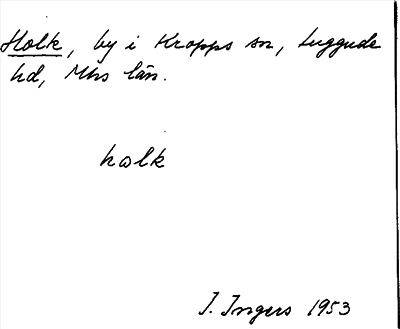 Holk, by i Kropps sn, Luggude
hd, Mhs län.
holk
I. Ingers 1953